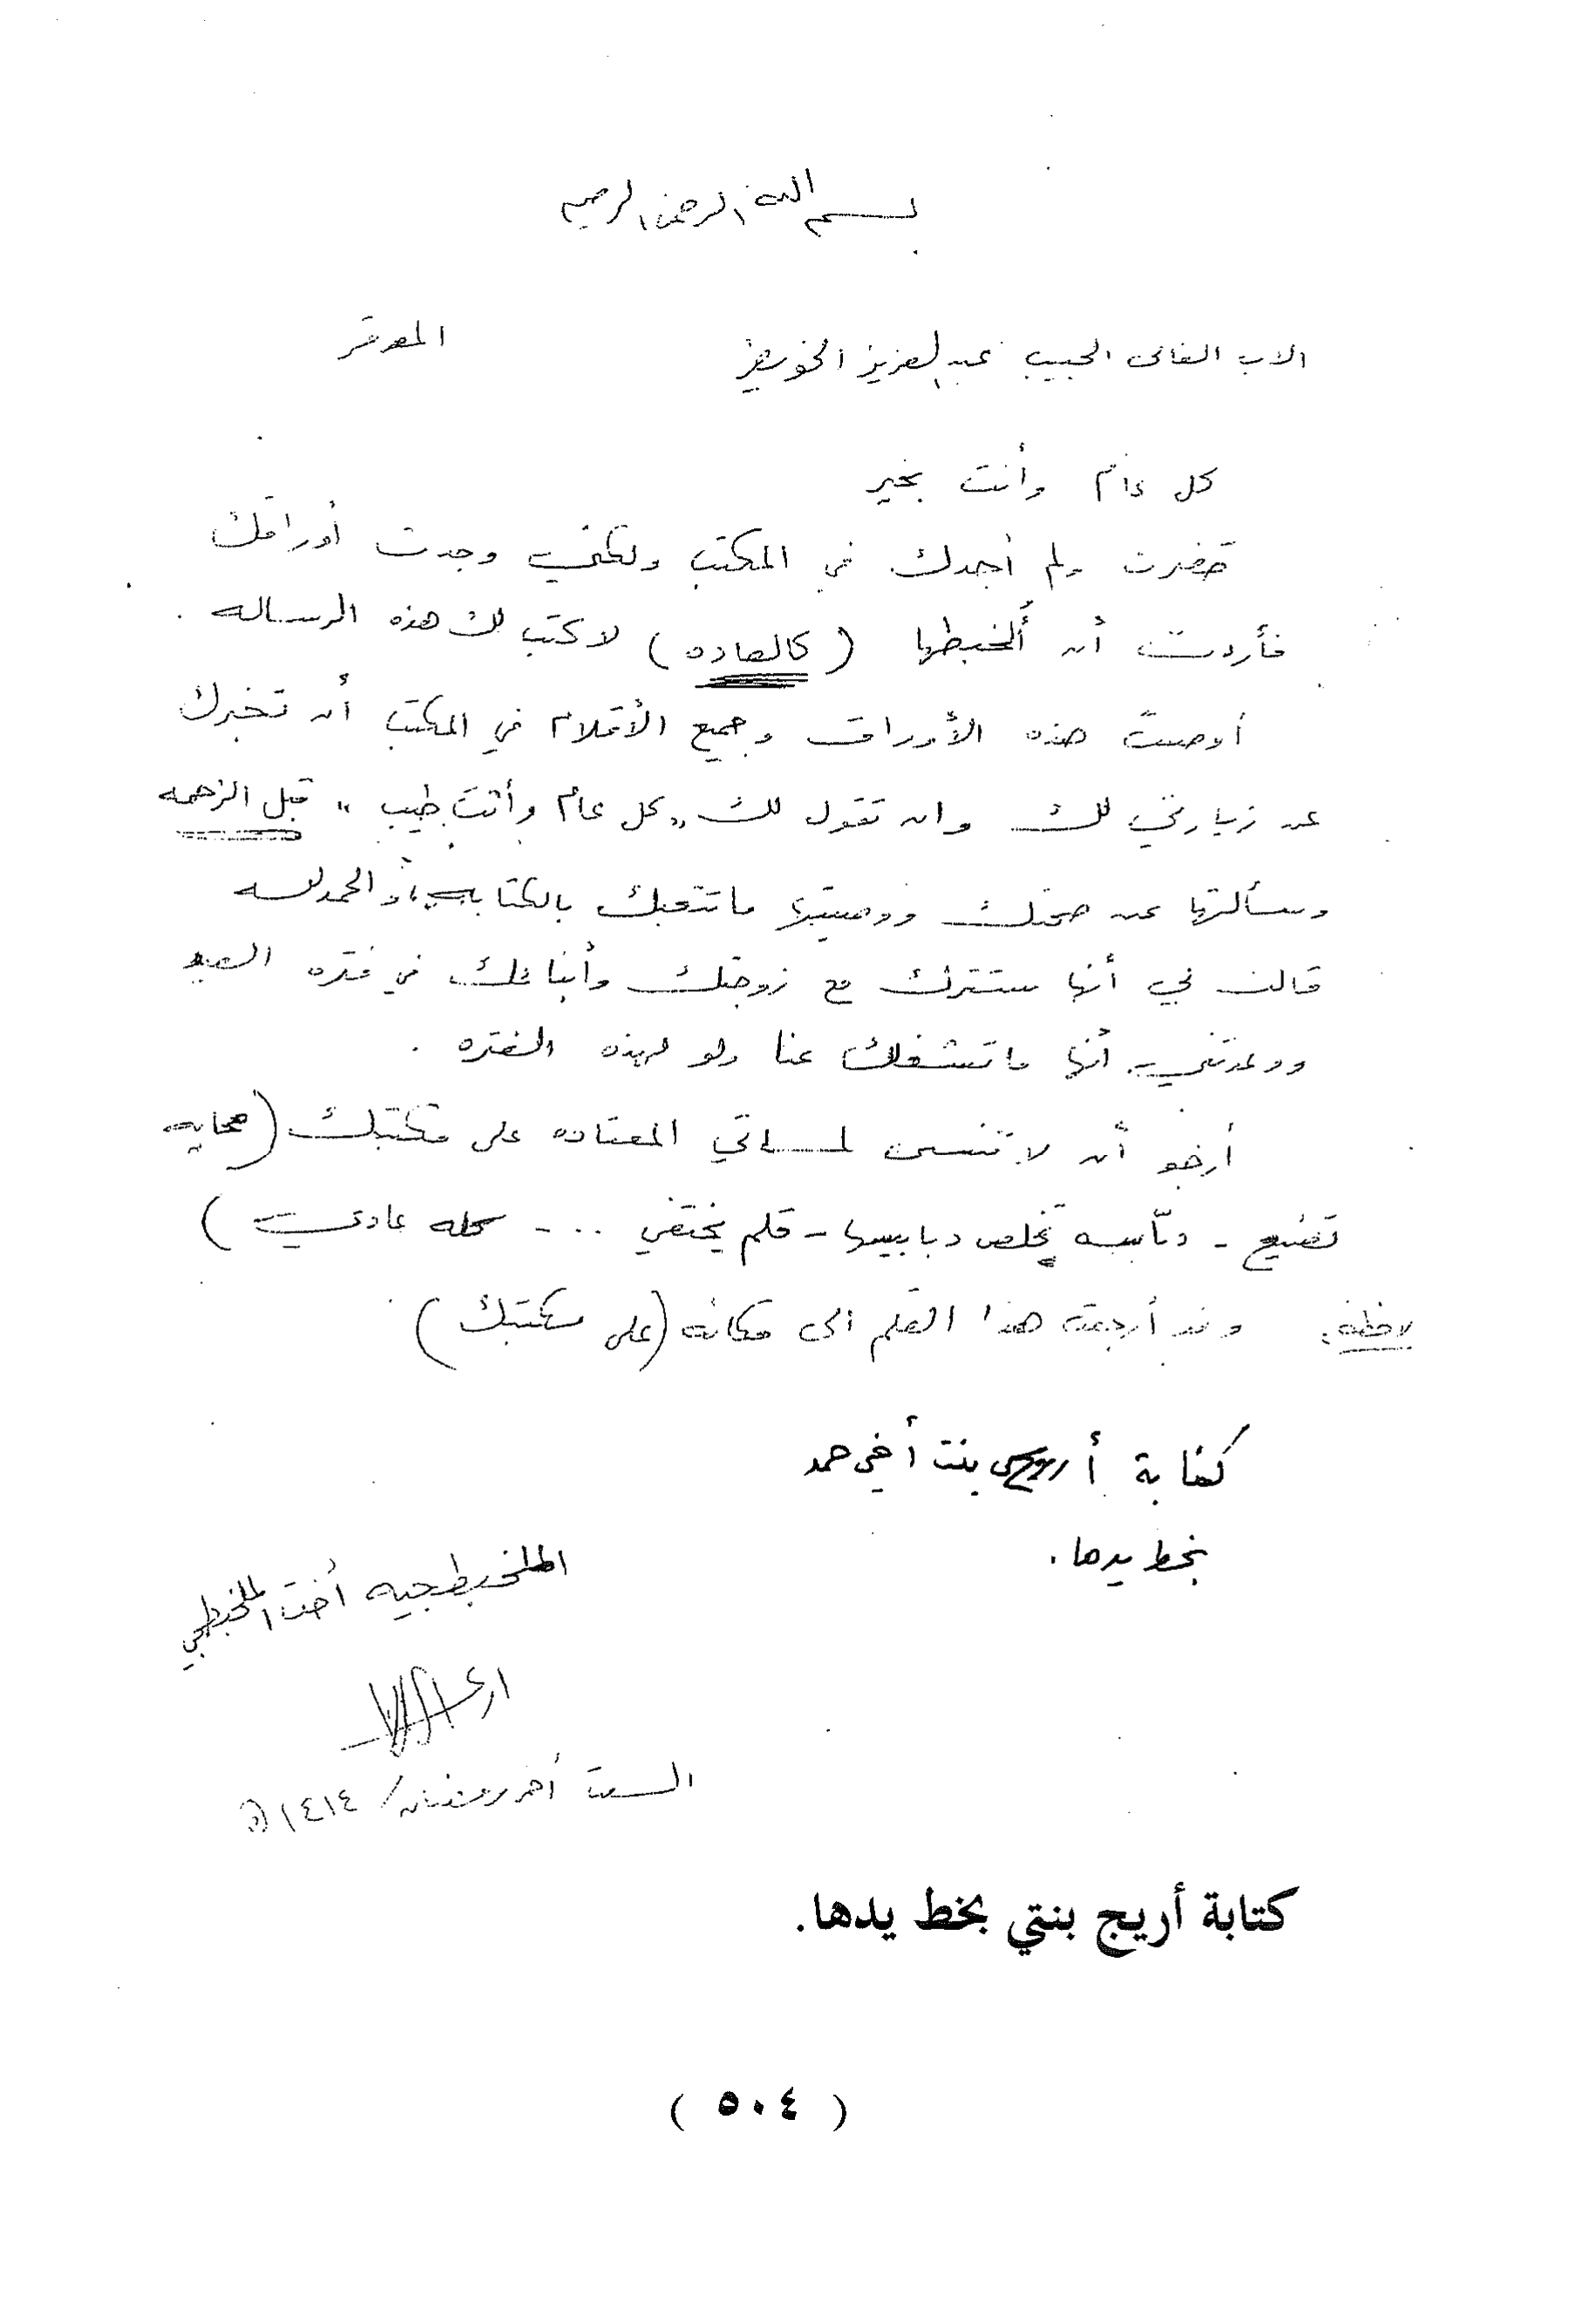 بسم الله الرحمن الرحيم
الاب الغالى الحبيب عبدالعزيز الخويطر الموقر
كل عام وأنت بخير
حضرت ولم أجدك في المكتب ولكني وجدت أوراقك
فأردت أن ألخبطها (كالعاده) لاكتب لك هذه الرساله .
أوصيت هذه الأوراق وجميع الأقلام في المكتب أن تخبرك
عن زيارتي لك وان تقول لك "كل عام وأنت طيب" قبل الزحمه
وسألتها عن صحتك ووصيتها ماتتعبك بالكتابه، والحمدلله
قالت لي أنها ستتركك مع زوجتك وأبنائك في فتره العيد
ووعدتني أنها ماتشغلك عنا ولو لهذه الفتره .
أرجو أن لا تنسى لمساتي المعتاده على مكتبك (محايه
تضيع - دباسه تخلص دبابيسها - قلم يختفي ... - كله عادي)
لاحظه: وقد أرجعت هذا القلم الى مكانه (على مكتبك)
كتابة أروى بنت أخي حمد
بخط يدها .
الملخبطجيه أخت الملخبطجي
السبت أخر رمضان / ١٤١٤ه
كتابة أريج بنتي بخط يدها.
( ٥٠٤ )